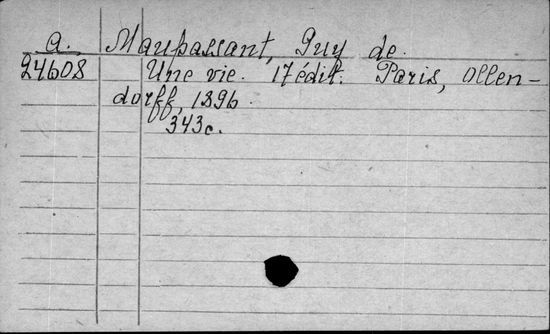 a. Maupassant, Guy de.
24608 Une vie. 17édit. Paris, Ollen-
dorff, 1896.
343c.